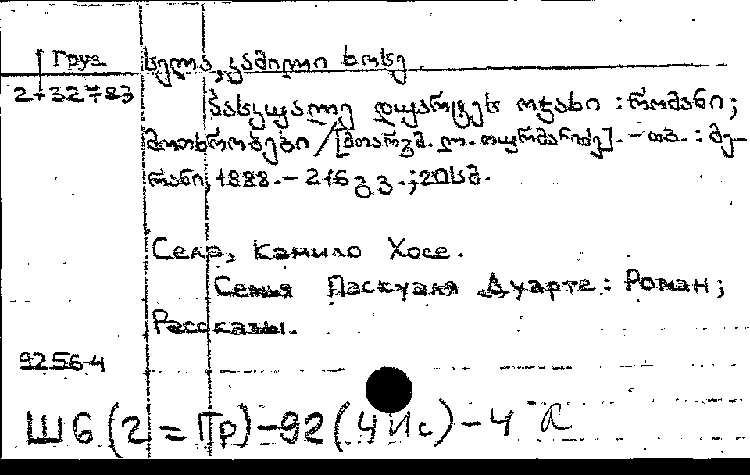 Груз. სელა, კამილო ხოსე.
2-32783
პასკუალე დუარტეს ოჯახი : რომანი;
მოთხრობები / [მთარგმ. ლ. თურმანიძე]. – თბ. : მე-
რანი, 1988. – 216 გვ. ; 20სმ.
Села, Камило Хосе.
Семья Паскуаля Дуарте : Роман;
Рассказы.
92564
Ш6(2=Гр)-92(4Ис)-4